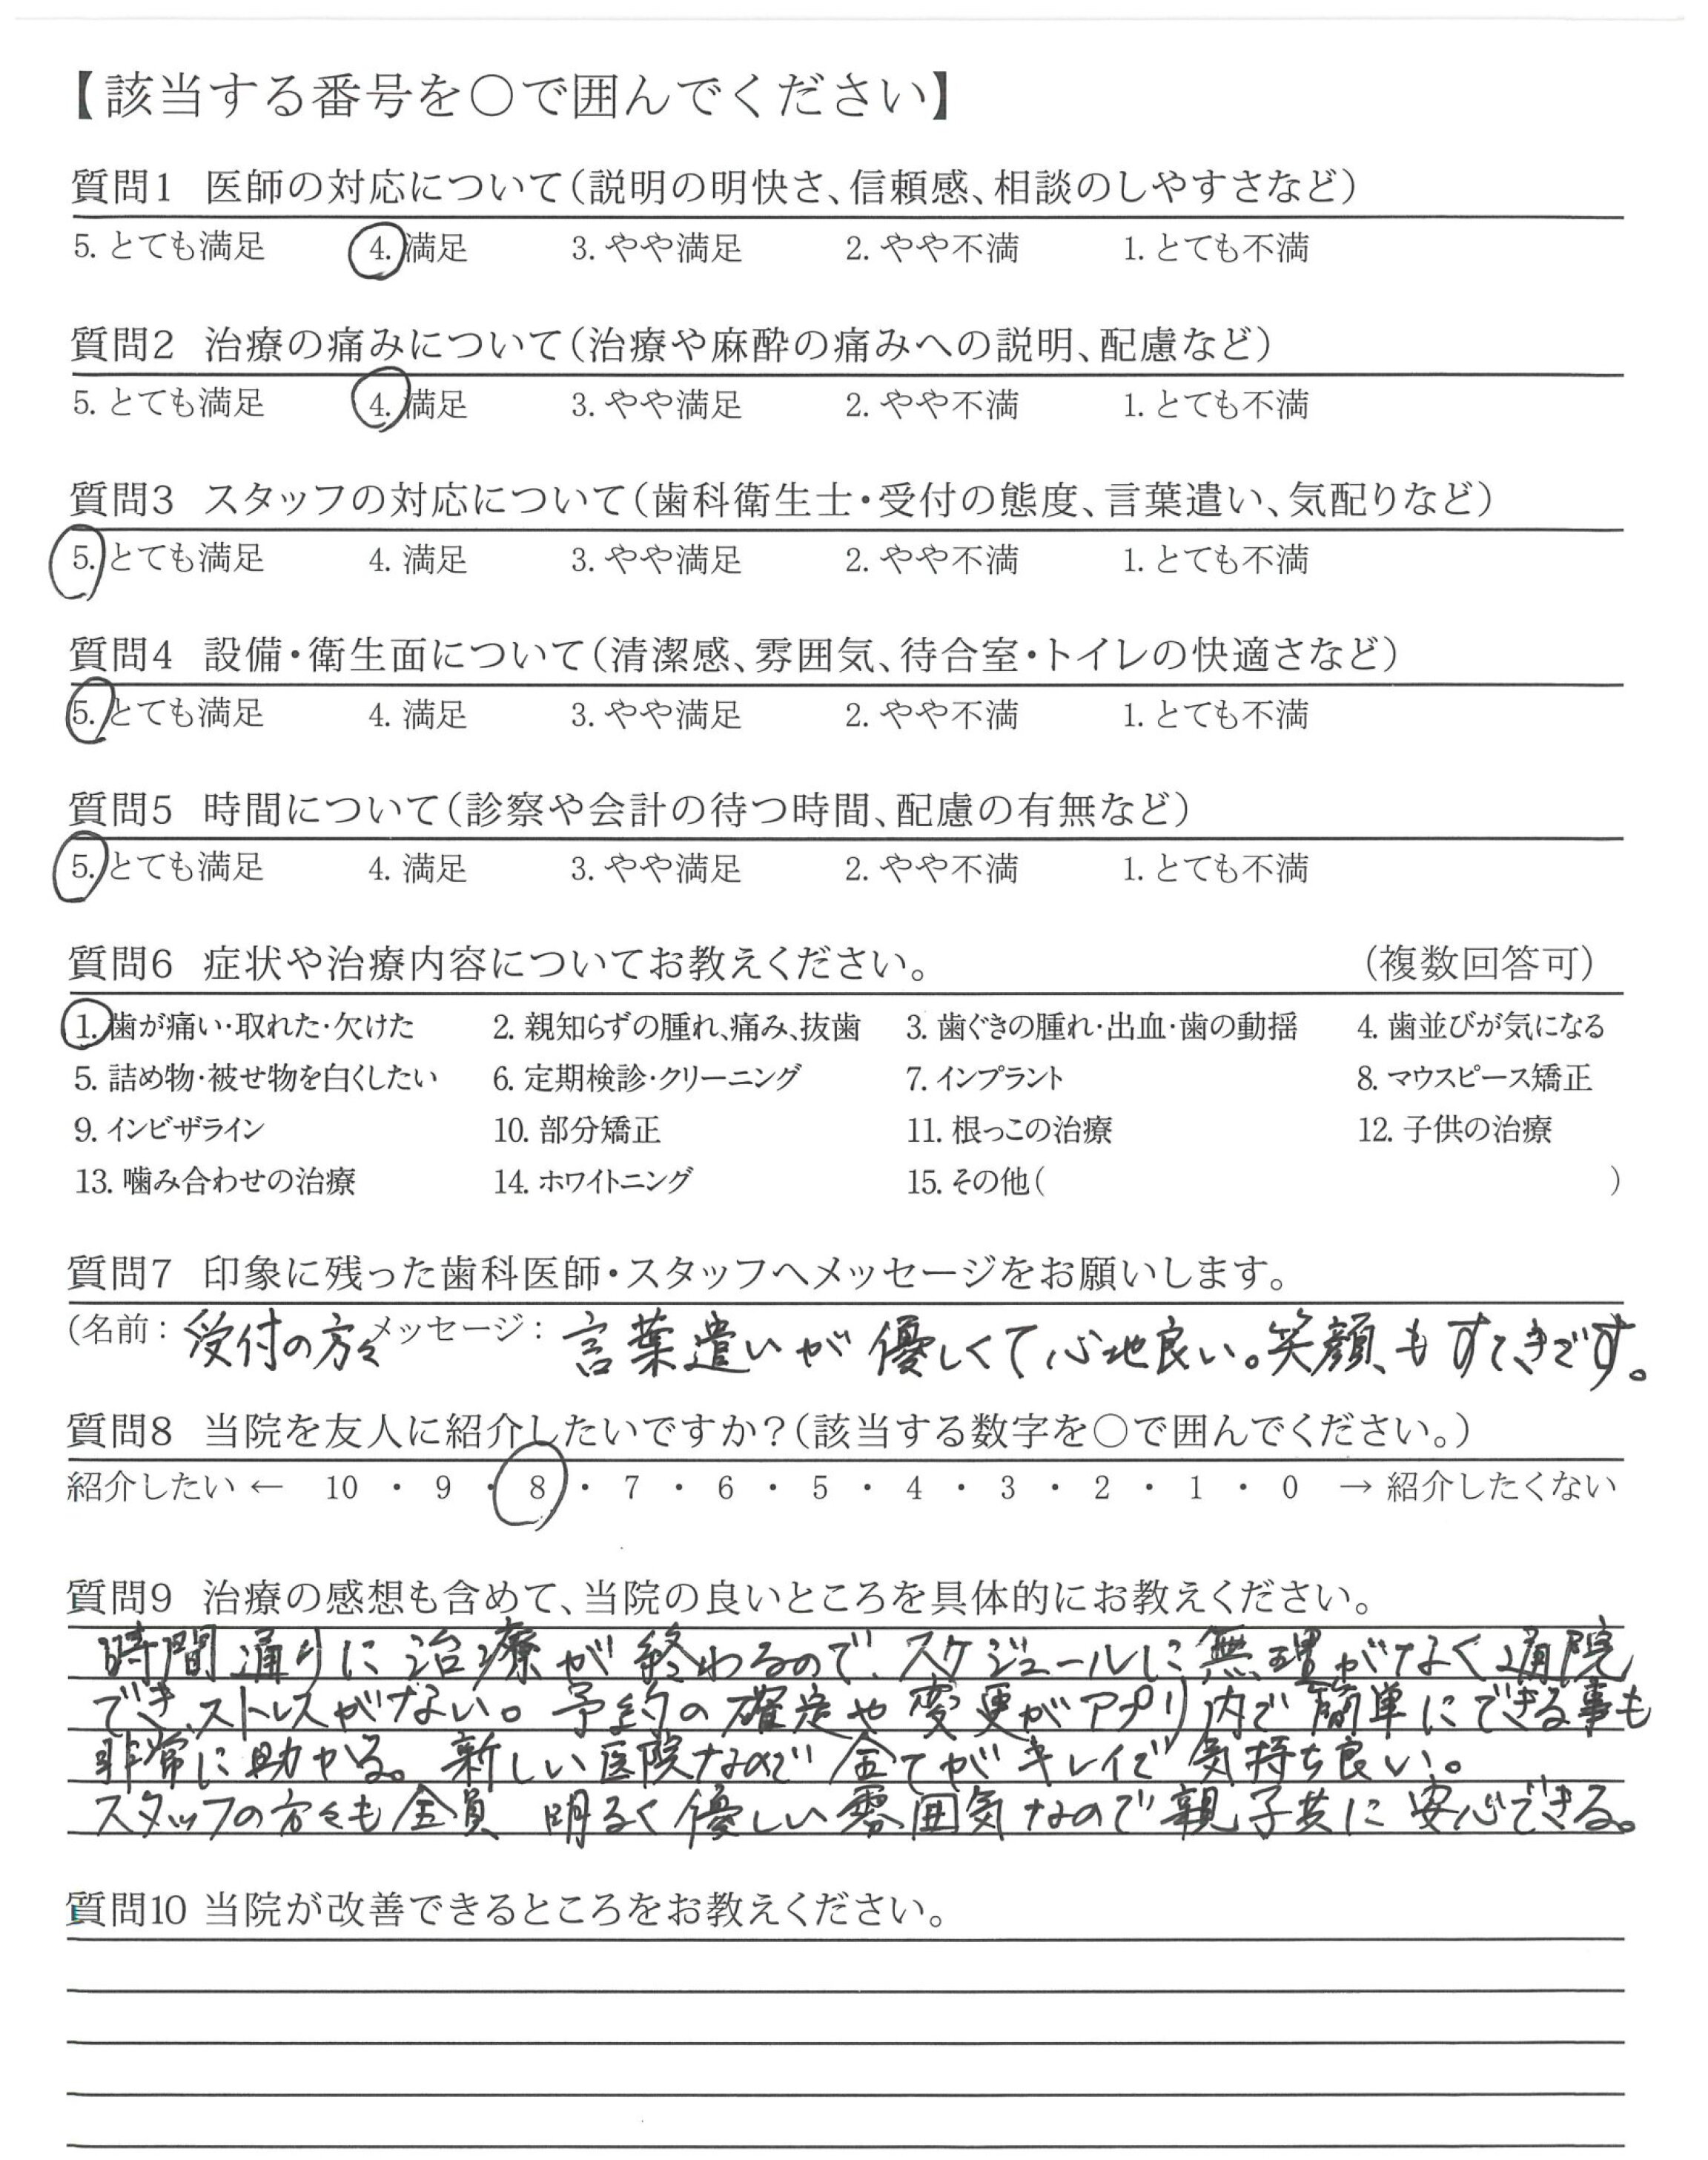 【該当する番号を〇で囲んでください】
質問1 医師の対応について（説明の明快さ、信頼感、相談のしやすさなど）
5. とても満足 4. 満足 3. やや満足 2. やや不満 1. とても不満
質問2 治療の痛みについて（治療や麻酔の痛みへの説明、配慮など）
5. とても満足 4. 満足 3. やや満足 2. やや不満 1. とても不満
質問3 スタッフの対応について（歯科衛生士・受付の態度、言葉遣い、気配りなど）
5. とても満足 4. 満足 3. やや満足 2. やや不満 1. とても不満
質問4 設備・衛生面について（清潔感、雰囲気、待合室・トイレの快適さなど）
5. とても満足 4. 満足 3. やや満足 2. やや不満 1. とても不満
質問5 時間について（診察や会計の待つ時間、配慮の有無など）
5. とても満足 4. 満足 3. やや満足 2. やや不満 1. とても不満
質問6 症状や治療内容についてお教えください。 （複数回答可）
1. 歯が痛い・取れた・欠けた 2. 親知らずの腫れ、痛み、抜歯 3. 歯ぐきの腫れ・出血・歯の動揺 4. 歯並びが気になる
5. 詰め物・被せ物を白くしたい 6. 定期検診・クリーニング 7. インプラント 8. マウスピース矯正
9. インビザライン 10. 部分矯正 11. 根っこの治療 12. 子供の治療
13. 噛み合わせの治療 14. ホワイトニング 15. その他（ ）
質問7 印象に残った歯科医師・スタッフへメッセージをお願いします。
（名前： 受付の方々 メッセージ： 言葉遣いが優しくて心地良い。笑顔もすてきです。
質問8 当院を友人に紹介したいですか？（該当する数字を〇で囲んでください。）
紹介したい ← 10 ・ 9 ・ 8 ・ 7 ・ 6 ・ 5 ・ 4 ・ 3 ・ 2 ・ 1 ・ 0 → 紹介したくない
質問9 治療の感想も含めて、当院の良いところを具体的にお教えください。
時間通りに治療が終わるので、スケジュールに無理がなく通院
でき、ストレスがない。予約の確定や変更がアプリ内で簡単にできる事も
非常に助かる。新しい医院なので全てがキレイで気持ち良い。
スタッフの方々も全員 明るく優しい雰囲気なので親子共に安心できる。
質問10 当院が改善できるところをお教えください。